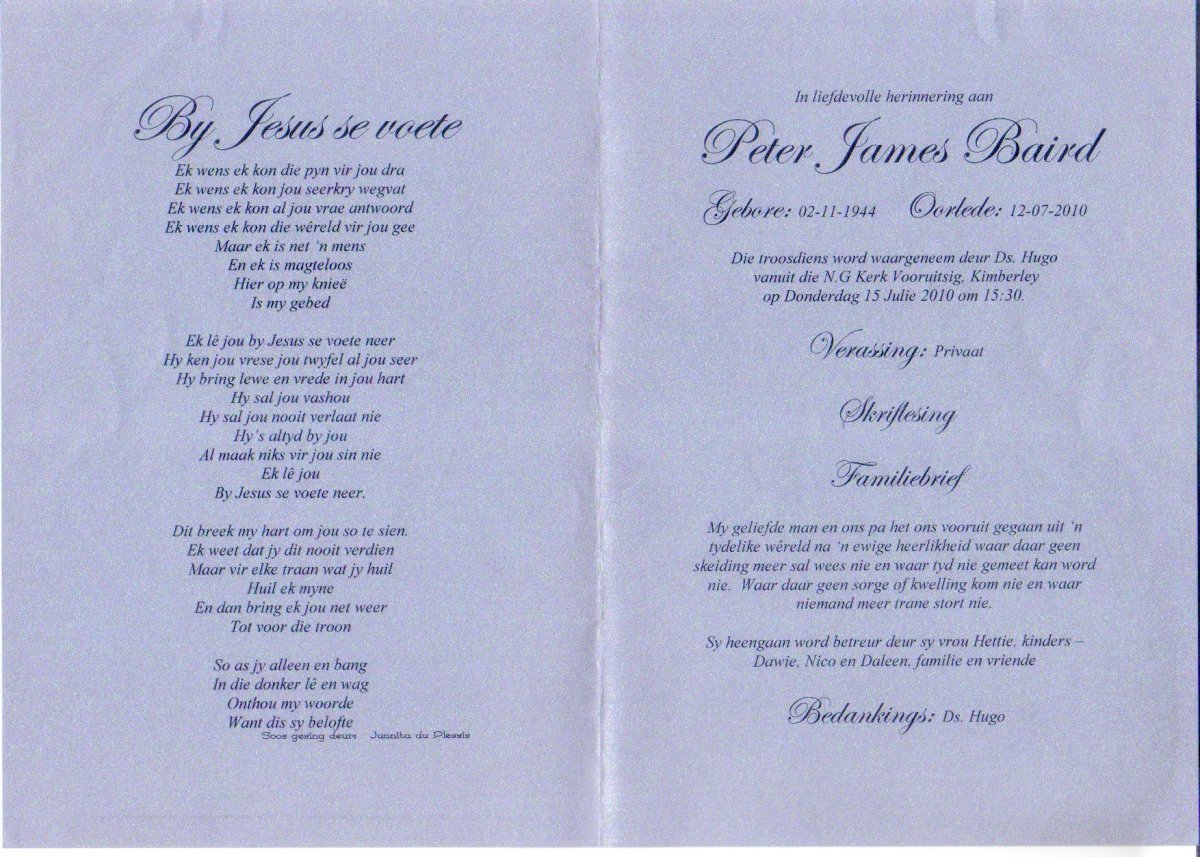 By Jesus se voete
Ek wens ek kon die pyn vir jou dra
Ek wens ek kon jou seerkry wegvat
Ek wens ek kon al jou vrae antwoord
Ek wens ek kon die wêreld vir jou gee
Maar ek is net ‘n mens
En ek is magteloos
Hier op my knieë
Is my gebed
Ek lê jou by Jesus se voete neer
Hy ken jou vrese jou twyfel al jou seer
Hy bring lewe en vrede in jou hart
Hy sal jou vashou
Hy sal jou nooit verlaat nie
Hy’s altyd by jou
Al maak niks vir jou sin nie
Ek lê jou
By Jesus se voete neer.
Dit breek my hart om jou so te sien.
Ek weet dat jy dit nooit verdien
Maar vir elke traan wat jy huil
Huil ek myne
En dan bring ek jou net weer
Tot voor die troon
So as jy alleen en bang
In die donker lê en wag
Onthou my woorde
Want dis sy belofte
Soos gesing deur: Juanita du Plessis
In liefdevolle herinnering aan
Peter James Baird
Gebore: 02-11-1944 Oorlede: 12-07-2010
Die troosdiens word waargeneem deur Ds. Hugo
vanuit die N.G Kerk Vooruitsig, Kimberley
op Donderdag 15 Julie 2010 om 15:30.
Verassing: Privaat
Skriflesing
Familiebrief
My geliefde man en ons pa het ons vooruit gegaan uit ‘n
tydelike wêreld na ‘n ewige heerlikheid waar daar geen
skeiding meer sal wees nie en waar tyd nie gemeet kan word
nie. Waar daar geen sorge of kwelling kom nie en waar
niemand meer trane stort nie.
Sy heengaan word betreur deur sy vrou Hettie, kinders –
Dawie, Nico en Daleen, familie en vriende
Bedankings: Ds. Hugo